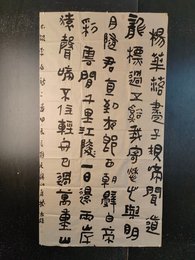 楊華落盡子規啼聞道
龍標過五谿我寄愁心與明
月隨君直到夜郎西朝辭白帝
彩雲間千里江陵一日還兩岸
猿聲啼不住輕舟已過萬重山